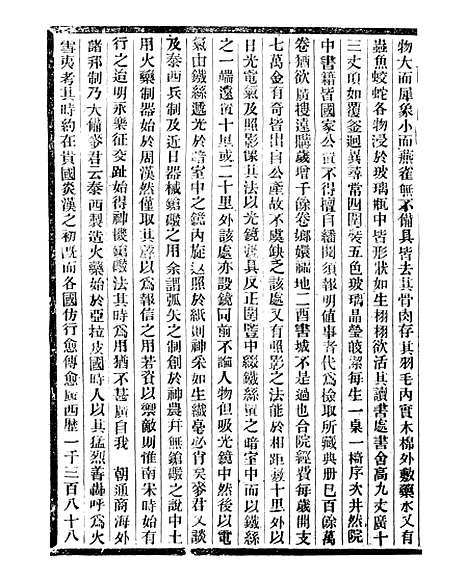 物大而犀象小而燕雀無不備具皆去其骨肉存其羽毛內實木棉外敷藥水又有
蟲魚蛟蛇各物浸於玻璃瓶中皆形狀如生栩栩欲活其讀書處書舍高九丈廣十
三丈頂如覆釜迴異尋常四圍裝五色玻璃晶瑩皎潔每生一桌一椅序次井然院
中書籍皆國家公置不得擅自繙閱須報明值事者代爲檢取所藏典册已百餘萬
卷猶欲廣搜遠購歲增千餘卷瑯嬛福地二酉書城不是過也合院經費每歲開支
七萬金有奇皆出自公產故不虞缺乏該處又有照影之法能於相距數十里外以
日光電氣及照影鏡其法以光鏡耗具反正閉鹽中綴鐵絲置之暗室中而以鐵絲
之一端遠置十里或二十里外該處亦設鏡同前不論人物但吸光鏡中然後以電
氣由鐵絲遞光於暗室中之鏡內旋返照於紙則神采如生纖毫必肖矣麥君又談
及泰西兵制及近日器械鎗礮之用余謂弧矢之制創於神農幷無鎗礮之說中土
用火藥制器始於周漢然僅取其聲以爲報信之用若資以禦敵則惟南宋時始有
行之迨明永樂征交趾始得神機鎗礮法其時爲用猶不甚廣自我　朝通商海外
諸邦制乃大備麥君云泰西製造火藥始於亞拉皮國時人以其猛烈善轟呼爲火
雪夷考其時約在貴國炎漢之初旣而各國仿行愈傳愈廣西歷一千三百八十八